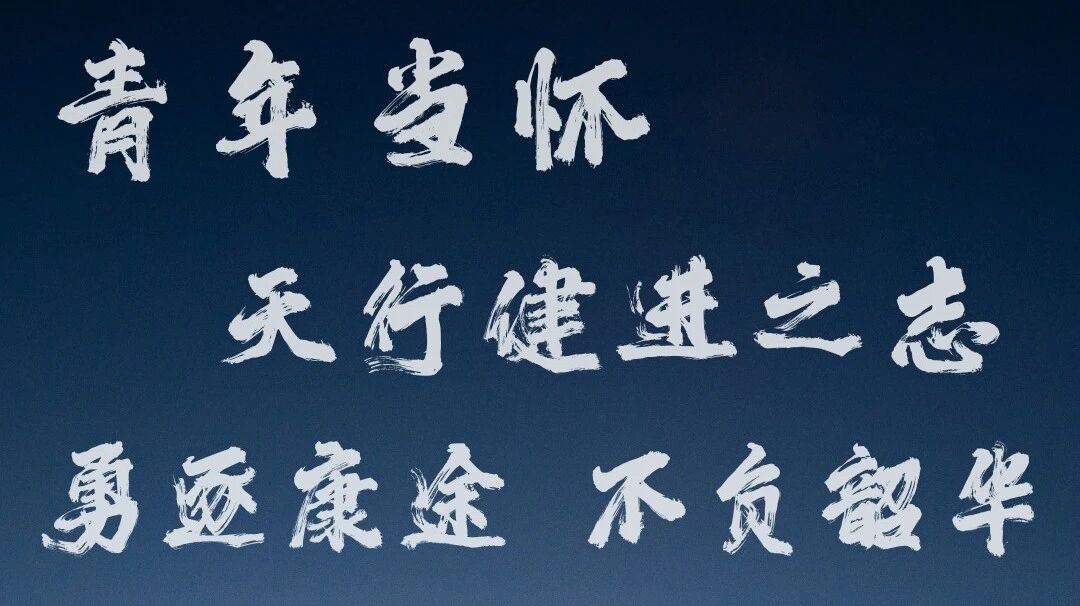 青年当怀
天行健进之志
勇逐康途 不负韶华